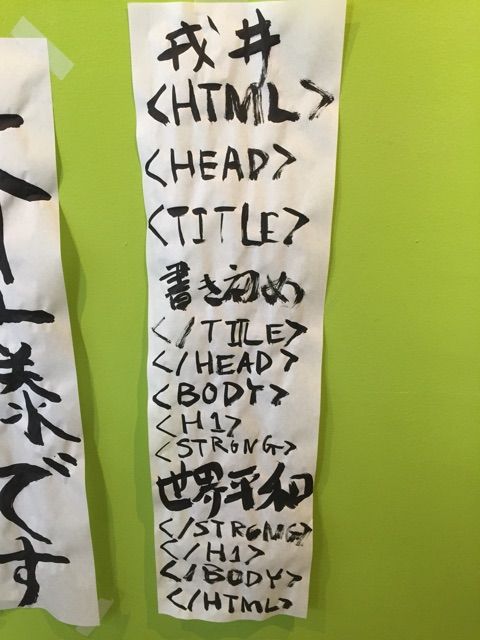 戎井
<HTML>
<HEAD>
<TITLE>
書き初め
</TITLE>
</HEAD>
<BODY>
<H1>
<STRONG>
世界平和
</STRONG>
</H1>
</BODY>
</HTML>
です